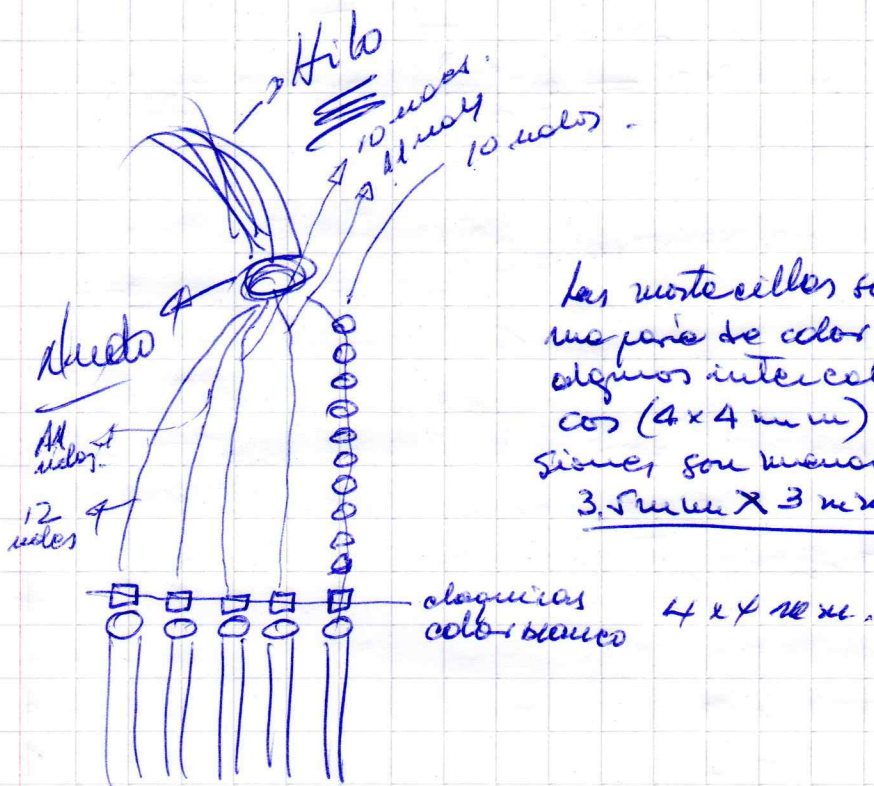 Hilo
10 nudos.
11 nudos
10 nudos.
Nudo
11 nudos.
12 nudos
Las mostacillas so
ma parte de color
algunos intercal
cos (4 x 4 mm)
siones son menor
3.5 mm X 3 mm
chaquiras
color blanco
4 x 4 mm.